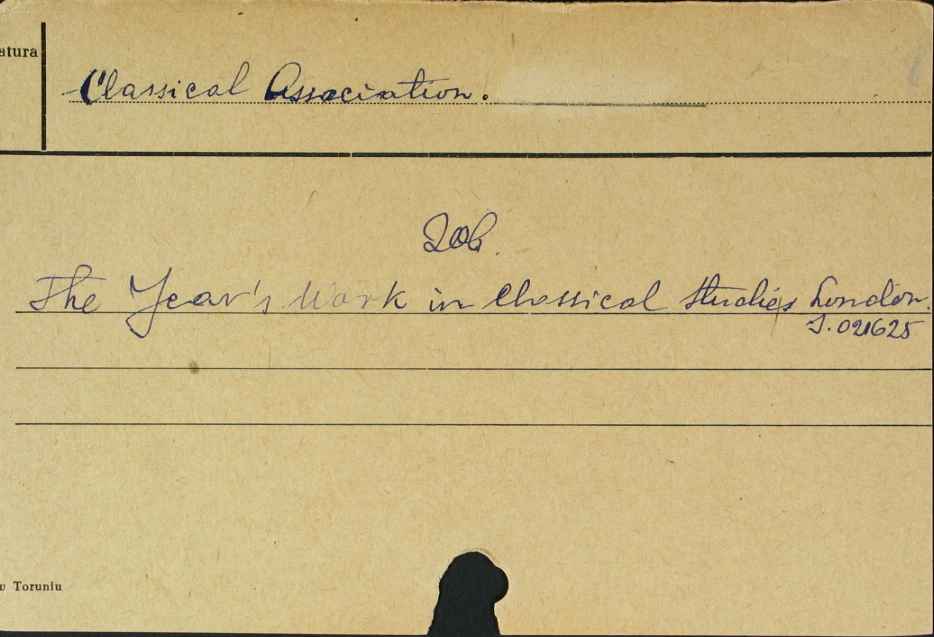 atura
Classical Association.
Zob.
The Year's Work in Classical Studies London.
J. 021625
w Toruniu